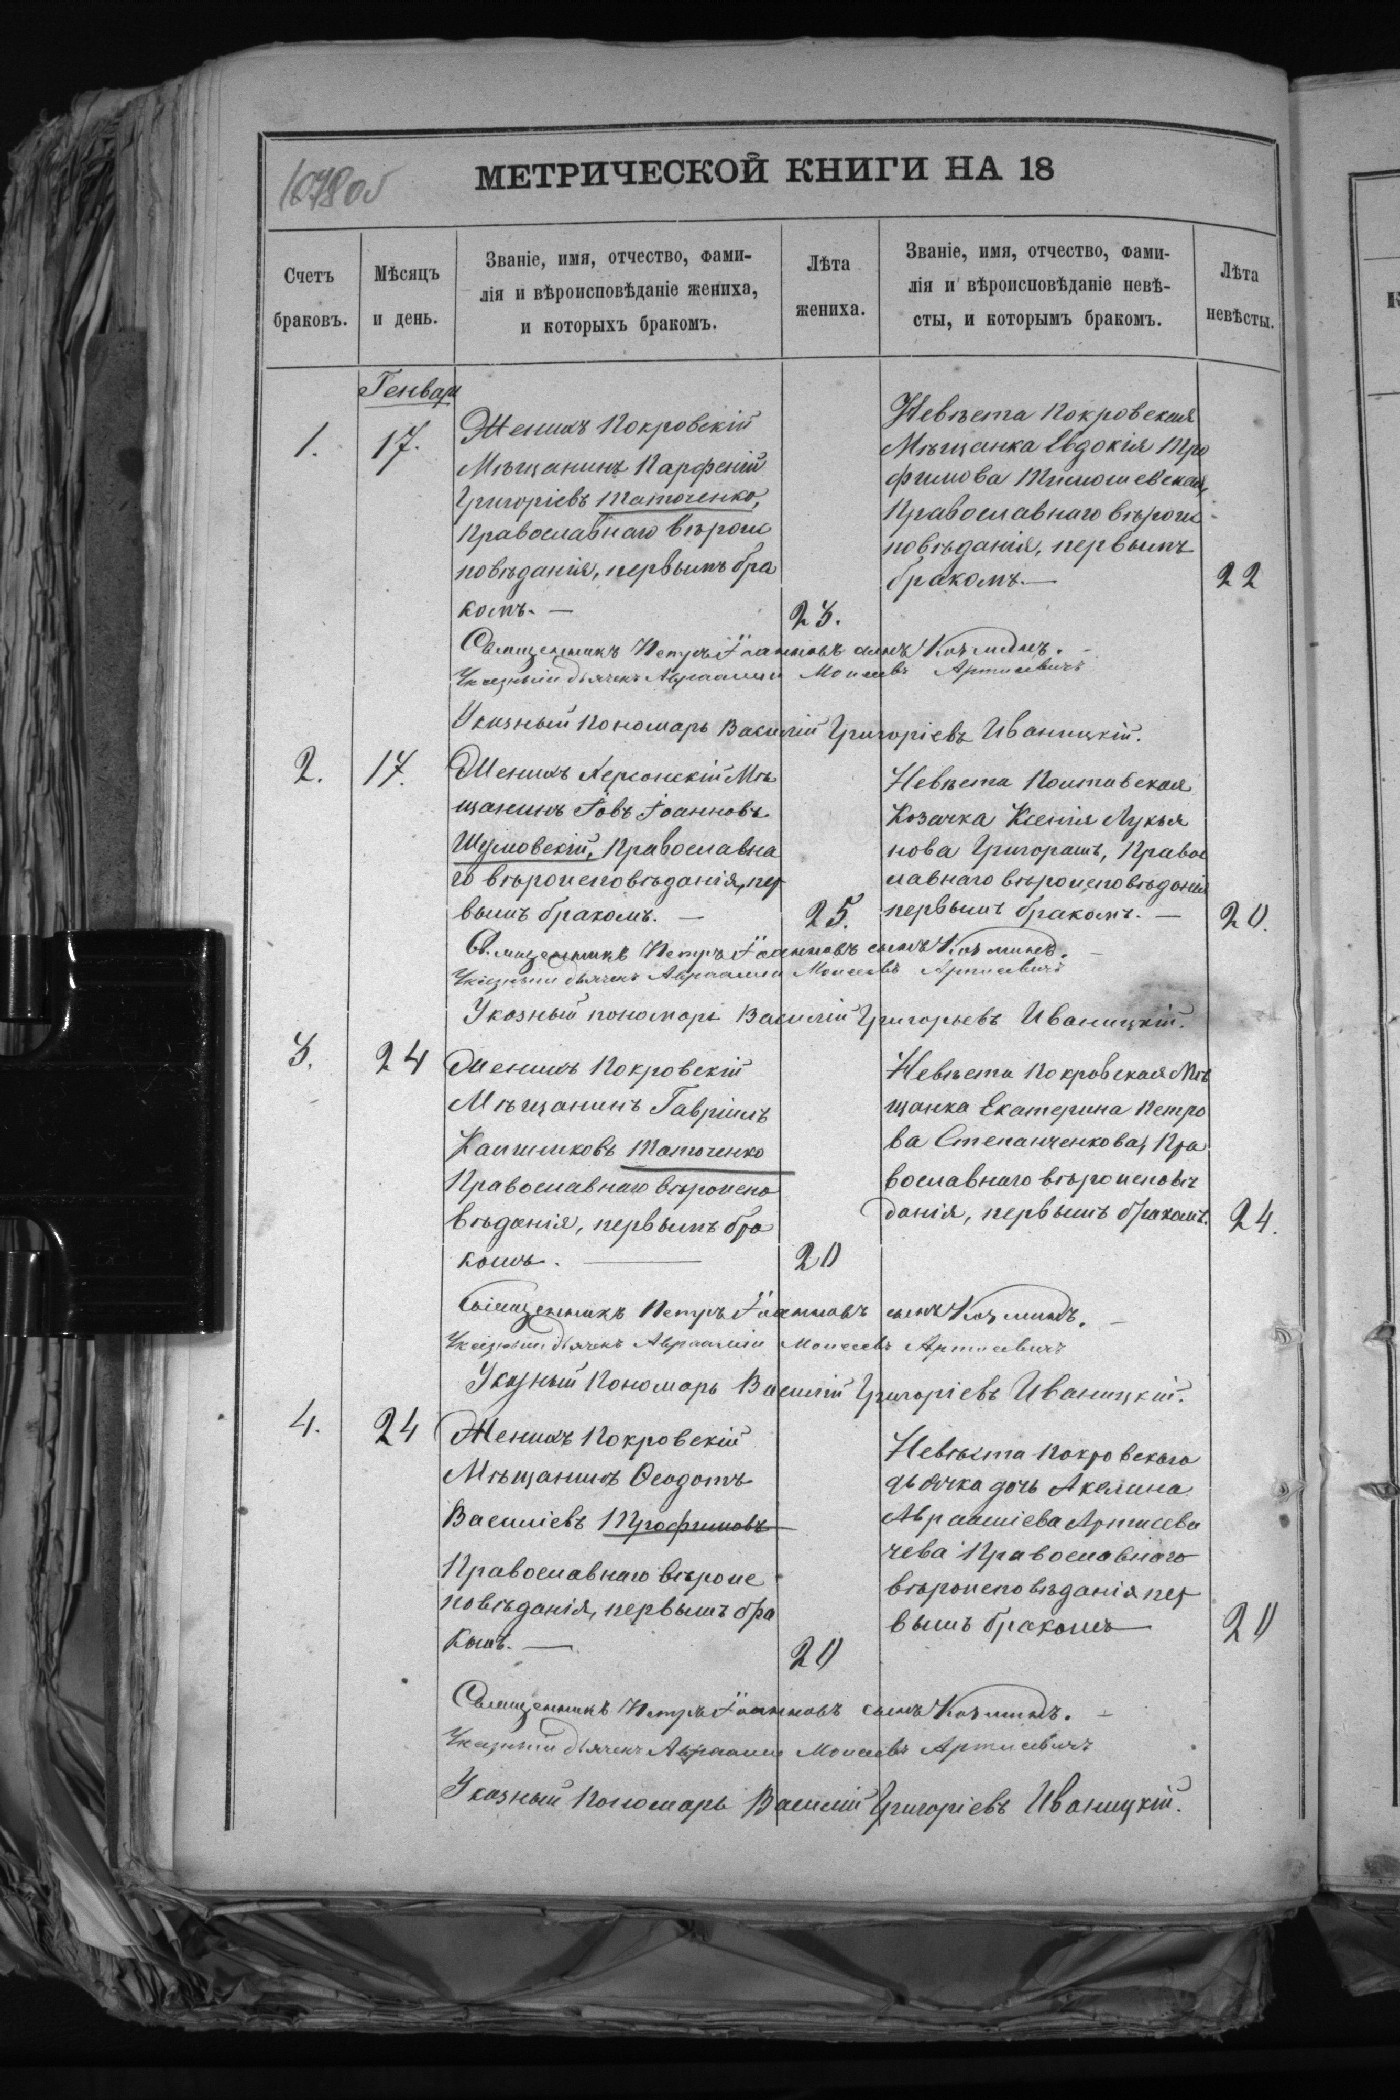 1078об
МЕТРИЧЕСКОЙ КНИГИ НА 18
Счетъ
браковъ.
Мѣсяцъ
и день.
Званіе, имя, отчество, фами-
лія и вѣроисповѣданіе жениха,
и которыхъ бракомъ.
Лѣта
жениха.
Званіе, имя, отчество, фами-
лія и вѣроисповѣданіе невѣ-
сты, и которымъ бракомъ.
Лѣта
невѣсты.
Генваря
1.
17.
Женихъ Покровскій
Мѣщанинъ Парфеній
Григоріевъ Таточенко,
Православнаго вѣроис
повѣданія, первымъ бра
комъ. —
23.
Невѣста Покровская
Мѣщанка Евдокія Тро
фимова Тимошевская,
Православнаго вѣроис
повѣданія, первымъ
бракомъ. —
22
Священникъ Петръ Іоанновъ сынъ Козминъ.
Указный дьячекъ Авраамій Моисеевъ Артисевичъ
Указный Пономарь Василій Григоріевъ Иваницкій.
2.
17.
Женихъ Херсонскій Мѣ
щанинъ Іовъ Іоанновъ
Шумовскій, Православна
го вѣроисповѣданія, пер
вымъ бракомъ. —
25.
Невѣста Полтавская
Козачка Ксенія Лукья
нова Григорашъ, Правос
лавнаго вѣроисповѣданія
первымъ бракомъ. —
20.
Священникъ Петръ Іоанновъ сынъ Козминъ.
Указный дьячекъ Авраамій Моисеевъ Артисевичъ
Указный пономарь Василій Григорьевъ Иваницкій.
3.
24
Женихъ Покровскій
Мѣщанинъ Гавріилъ
Каплиновъ Таточенко
Православнаго вѣроиспо
вѣданія, первымъ бра
комъ. —
20
Невѣста Покровская Мѣ
щанка Екатерина Петро
ва Степанченкова, Пра
вославнаго вѣроисповѣ
данія, первымъ бракомъ.
24.
Священникъ Петръ Іоанновъ сынъ Козминъ.
Указный дьячекъ Авраамій Моисеевъ Артисевичъ
Указный Пономарь Василій Григоріевъ Иваницкій.
4.
24
Женихъ Покровскій
Мѣщанинъ Ѳеодотъ
Василіевъ Трофимовъ
Православнаго вѣроис
повѣданія, первымъ бра
комъ. —
20
Невѣста Покровскаго
дьячка дочь Акилина
Аврааміева Артисеви
чева Православнаго
вѣроисповѣданія пер
вымъ бракомъ —
20
Священникъ Петръ Іоанновъ сынъ Козминъ.
Указный дьячекъ Авраамій Моисеевъ Артисевичъ
Указный Пономарь Василій Григоріевъ Иваницкій.